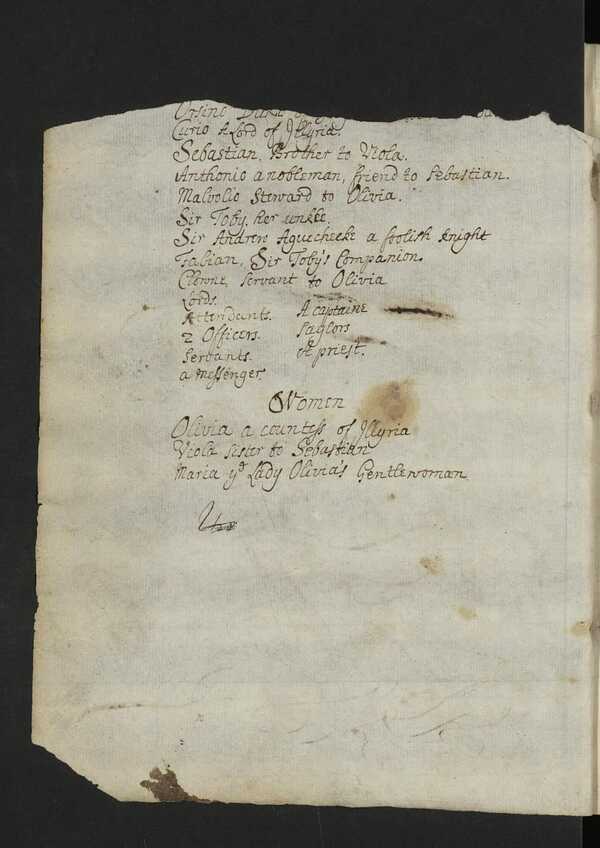 Orsino Duke
Curio A Lord of Jllyria.
Sebastian, Brother to Viola.
Anthonio a nobleman, friend to Sebastian.
Malvolio Steward to Olivia.
Sir Toby, her unkle.
Sir Andrew Aguecheeke a foolish Knight
Fabian, Sir Toby's Companion.
Clowne, Servant to Olivia
Lords.
Attendants. A captaine
2 Officers. Saylors
Servants. A priest.
a Messenger.
Women
Olivia a countess of Jllyria
Viola sister to Sebastian
Maria ye Lady Olivia's Gentlewoman